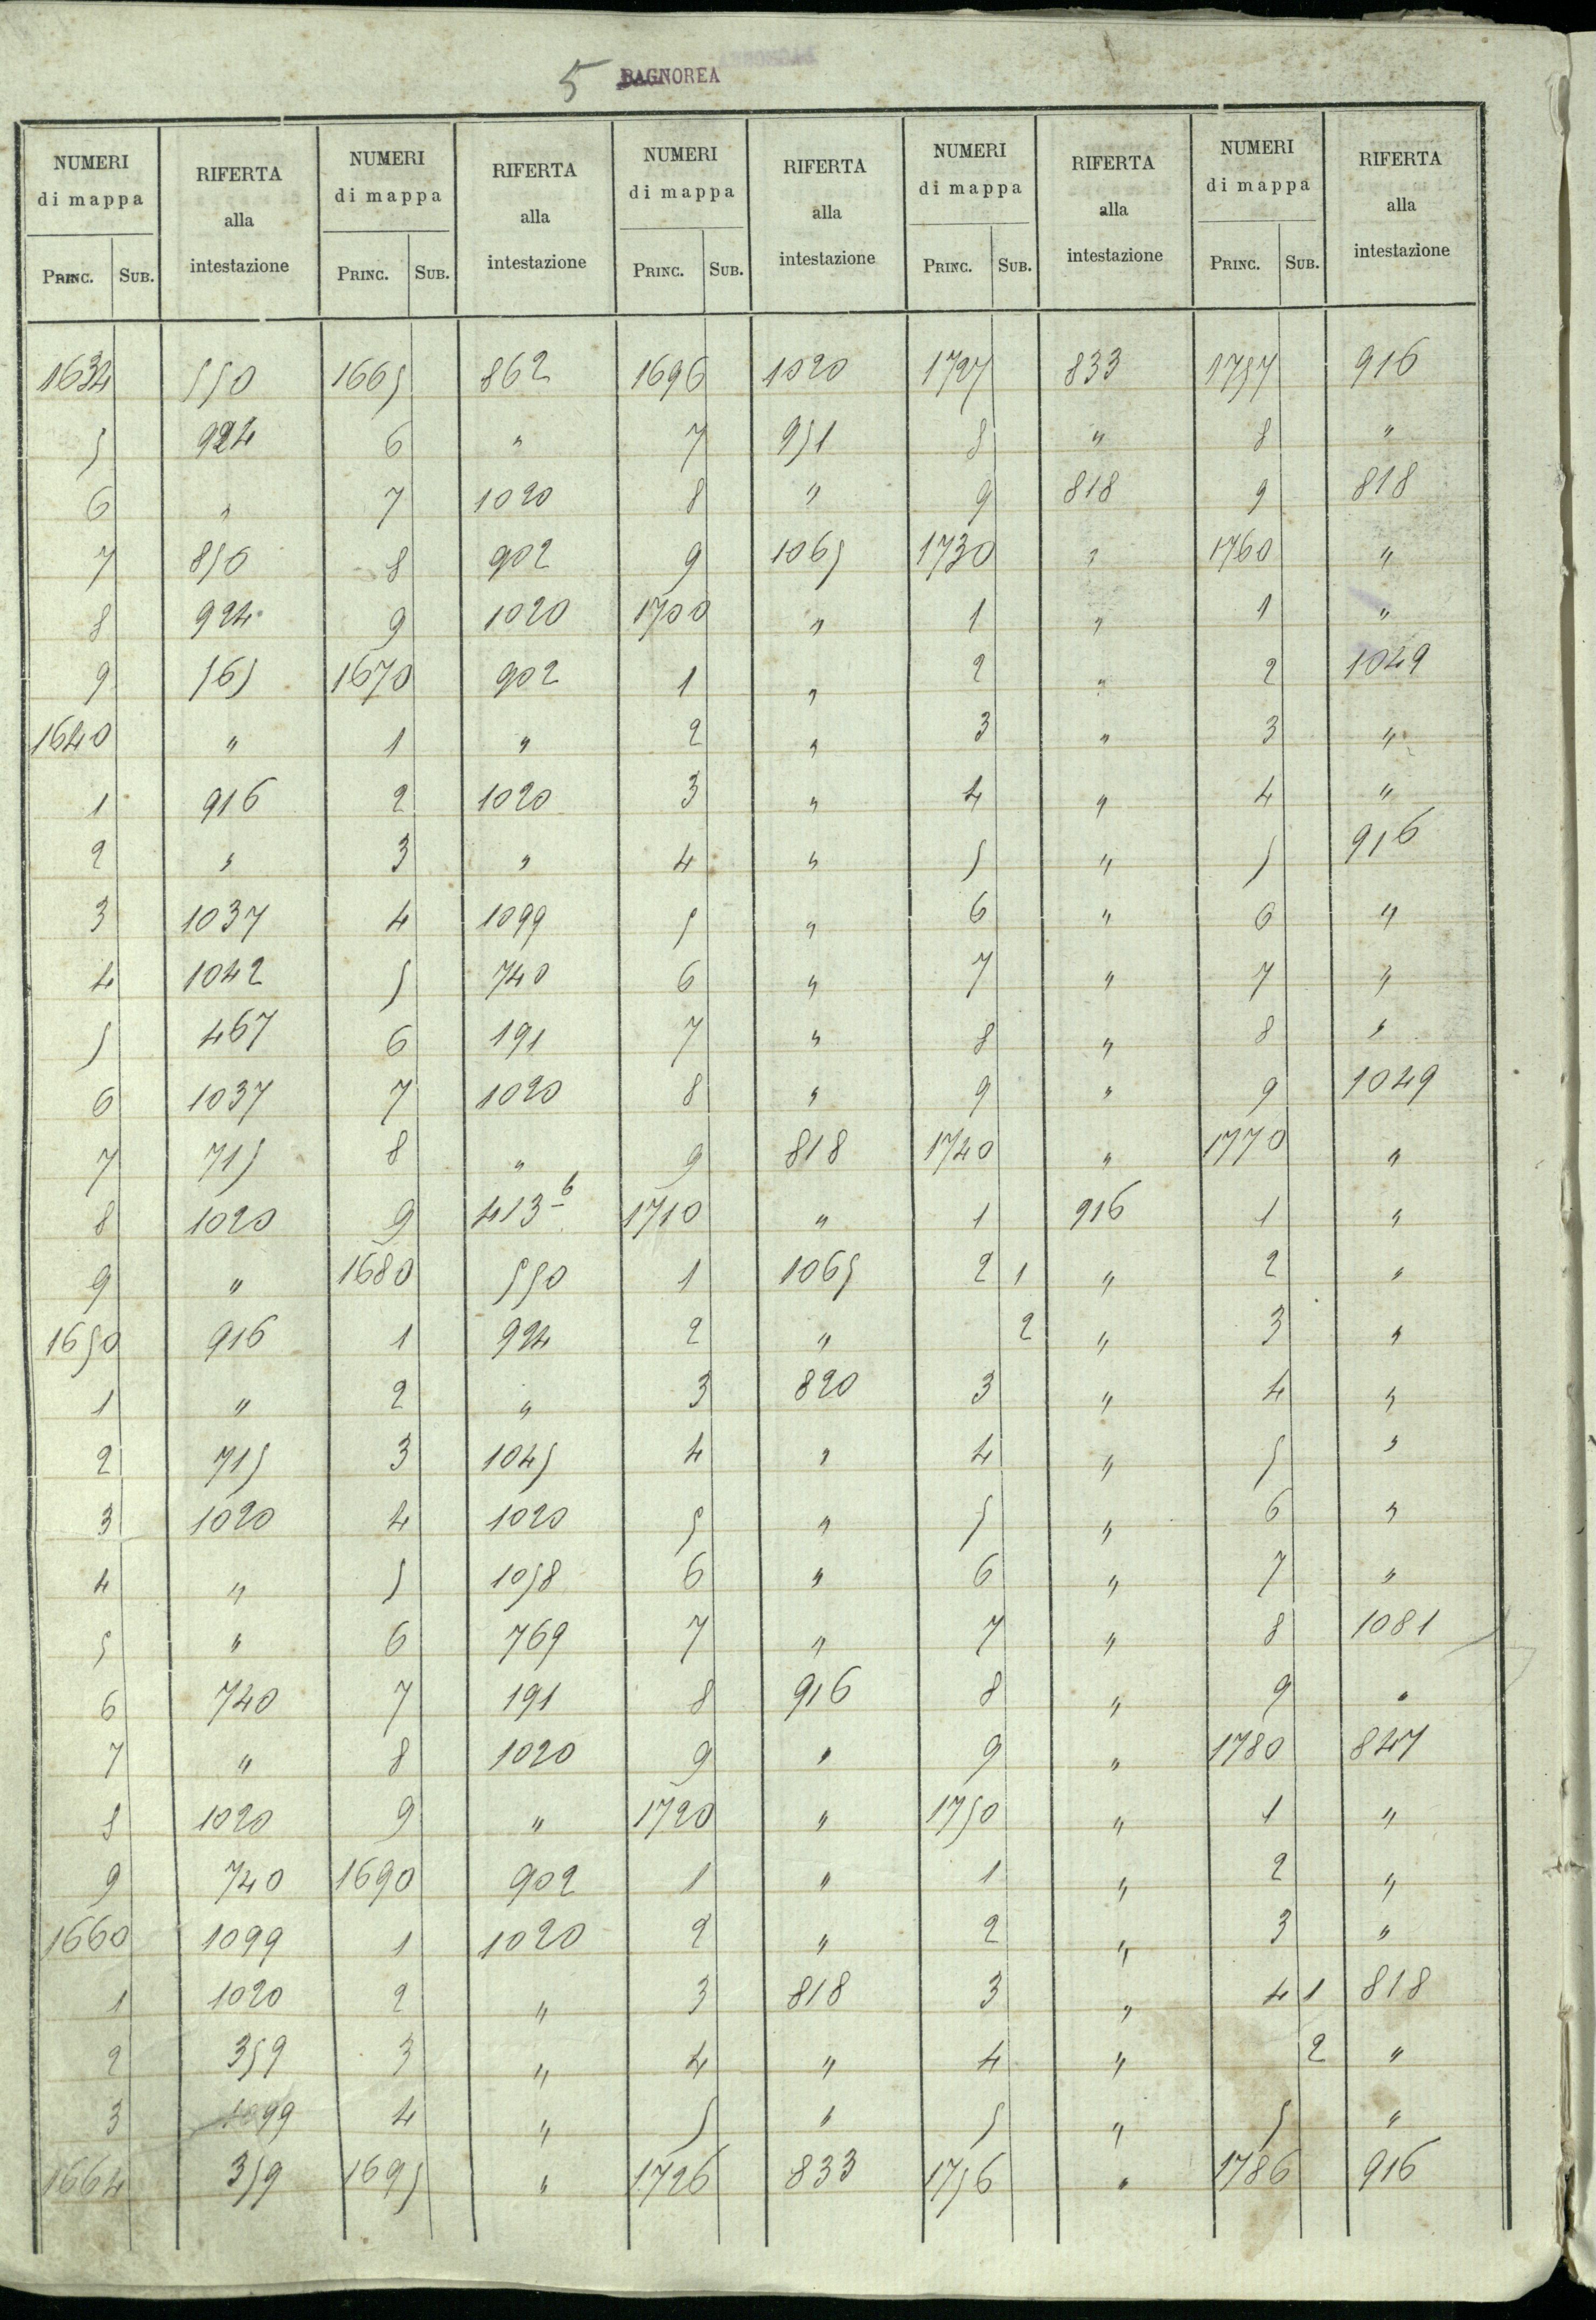 5 BAGNOREA
NUMERI di mappa RIFERTA alla intestazione NUMERI di mappa RIFERTA alla intestazione NUMERI di mappa RIFERTA alla intestazione NUMERI di mappa RIFERTA alla intestazione NUMERI di mappa RIFERTA alla intestazione
PRINC. SUB. PRINC. SUB. PRINC. SUB. PRINC. SUB. PRINC. SUB.
1634 550 1665 862 1696 1020 1727 833 1757 916
5 924 6 " 7 951 8 " 8 "
6 " 7 1020 8 " 9 818 9 818
7 850 8 902 9 1065 1730 " 1760 "
8 924 9 1020 1700 " 1 " 1 "
9 565 1670 902 1 " 2 " 2 1049
1640 " 1 " 2 " 3 " 3 "
1 916 2 1020 3 " 4 " 4 "
2 " 3 " 4 " 5 " 5 916
3 1037 4 1099 5 " 6 " 6 "
4 1042 5 740 6 " 7 " 7 "
5 467 6 191 7 " 8 " 8 "
6 1037 7 1020 8 " 9 " 9 1049
7 715 8 " 9 818 1740 " 1770 "
8 1020 9 413 6 1710 " 1 916 1 "
9 " 1680 550 1 1065 2 1 " 2 "
1650 916 1 924 2 " 2 " 3 "
1 " 2 " 3 820 3 " 4 "
2 715 3 1045 4 " 4 " 5 "
3 1020 4 1020 5 " 5 " 6 "
4 " 5 1058 6 " 6 " 7 "
5 " 6 769 7 " 7 " 8 1081
6 740 7 191 8 916 8 " 9 "
7 " 8 1020 9 " 9 " 1780 847
8 1020 9 " 1720 " 1750 " 1 "
9 740 1690 902 1 " 1 " 2 "
1660 1099 1 1020 2 " 2 " 3 "
1 1020 2 " 3 818 3 " 4 1 818
2 359 3 " 4 " 4 " 2 "
3 1099 4 " 5 " 5 " 5 "
1664 359 1695 " 1726 833 1756 " 1786 916